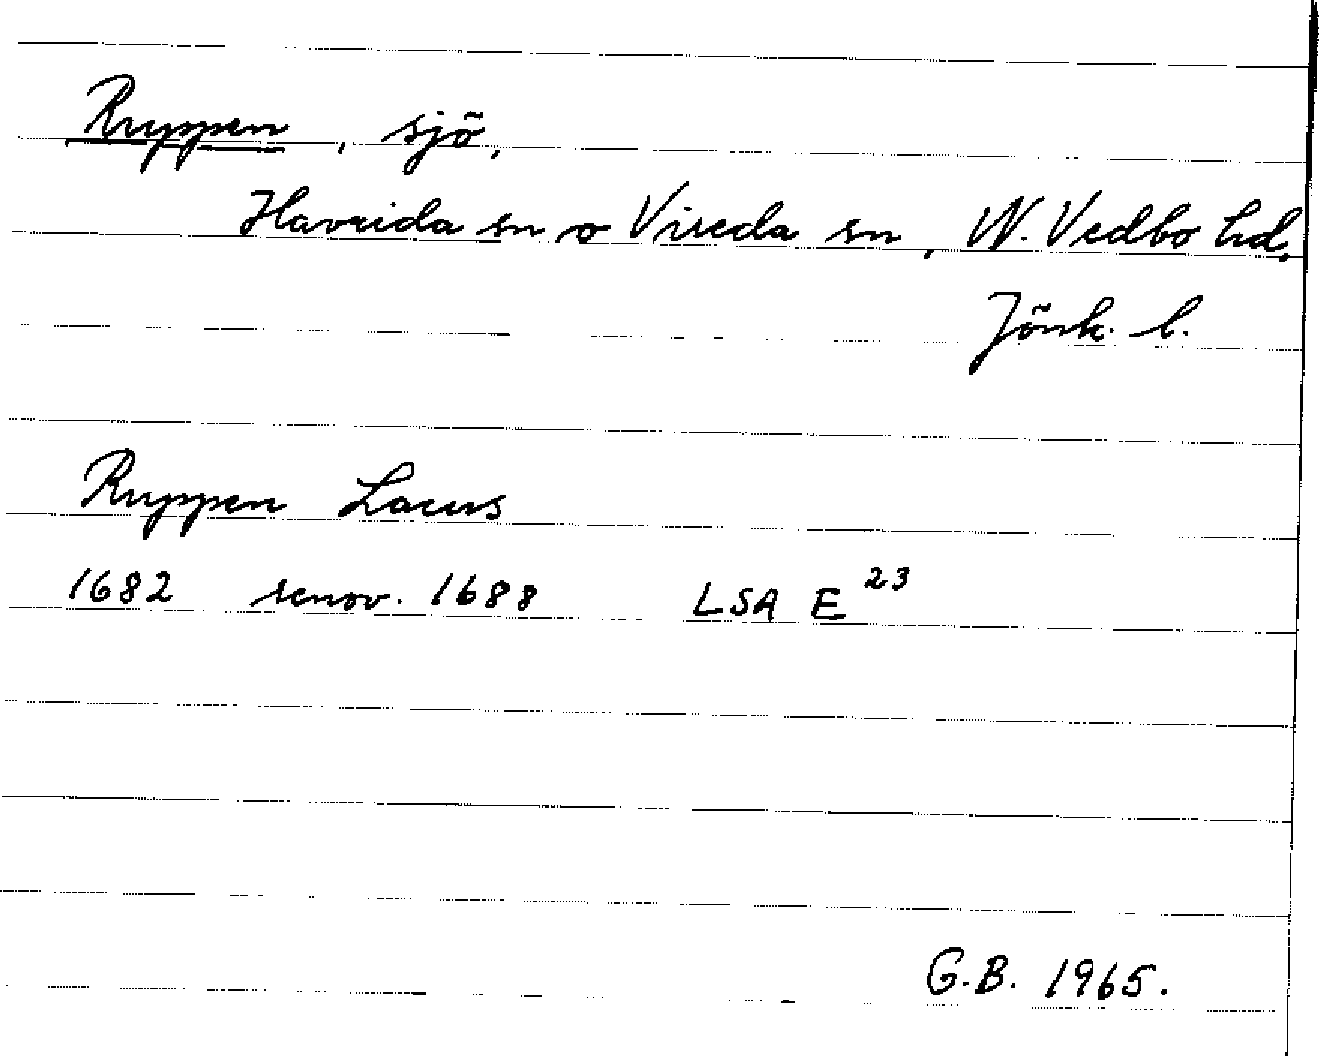 Ruppen, sjö,
Haurida sn o Vireda sn, N. Vedbo hd,
Jönk. l.
Ruppen Lacus
1682 renov. 1688 LSA E 23
G.B. 1965.